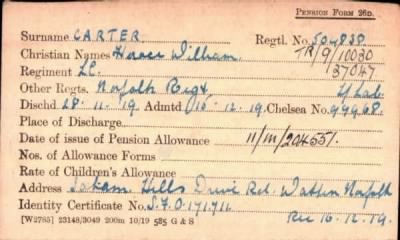 PENSION FORM 26D.
Surname CARTER. Regtl. No. 504838.
Christian Names Horace William. TR/9/10030
Regiment L.C. 37047
Other Regts. Norfolk Regt
Dischd 28.11.19. Admtd 16.12.19. Chelsea No. 99968.
Place of Discharge
Date of issue of Pension Allowance 11/M/204551.
Nos. of Allowance Forms
Rate of Children's Allowance
Address Hills Drive Rd. Watton Norfolk
Identity Certificate No. S.F.O.171.711
Rec 16.12.19.
[W2785] 23148/3049 200m 10/19 585 G & S